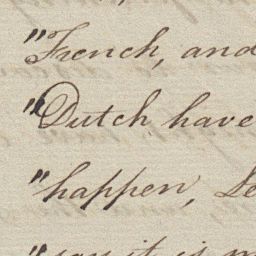 "French, and
"Dutch have
"happen, Le
"say it is m